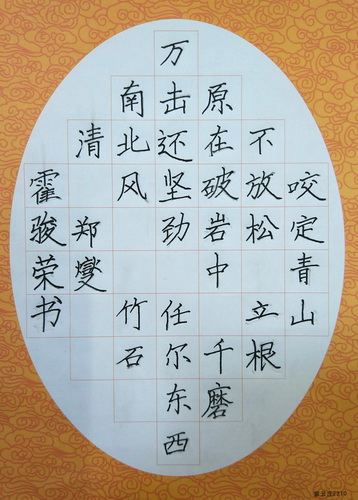 咬定青山
不放松 立根
原在破岩中 千磨
万击还坚劲 任尔东西
南北风 竹石
清 郑燮
霍骏荣书